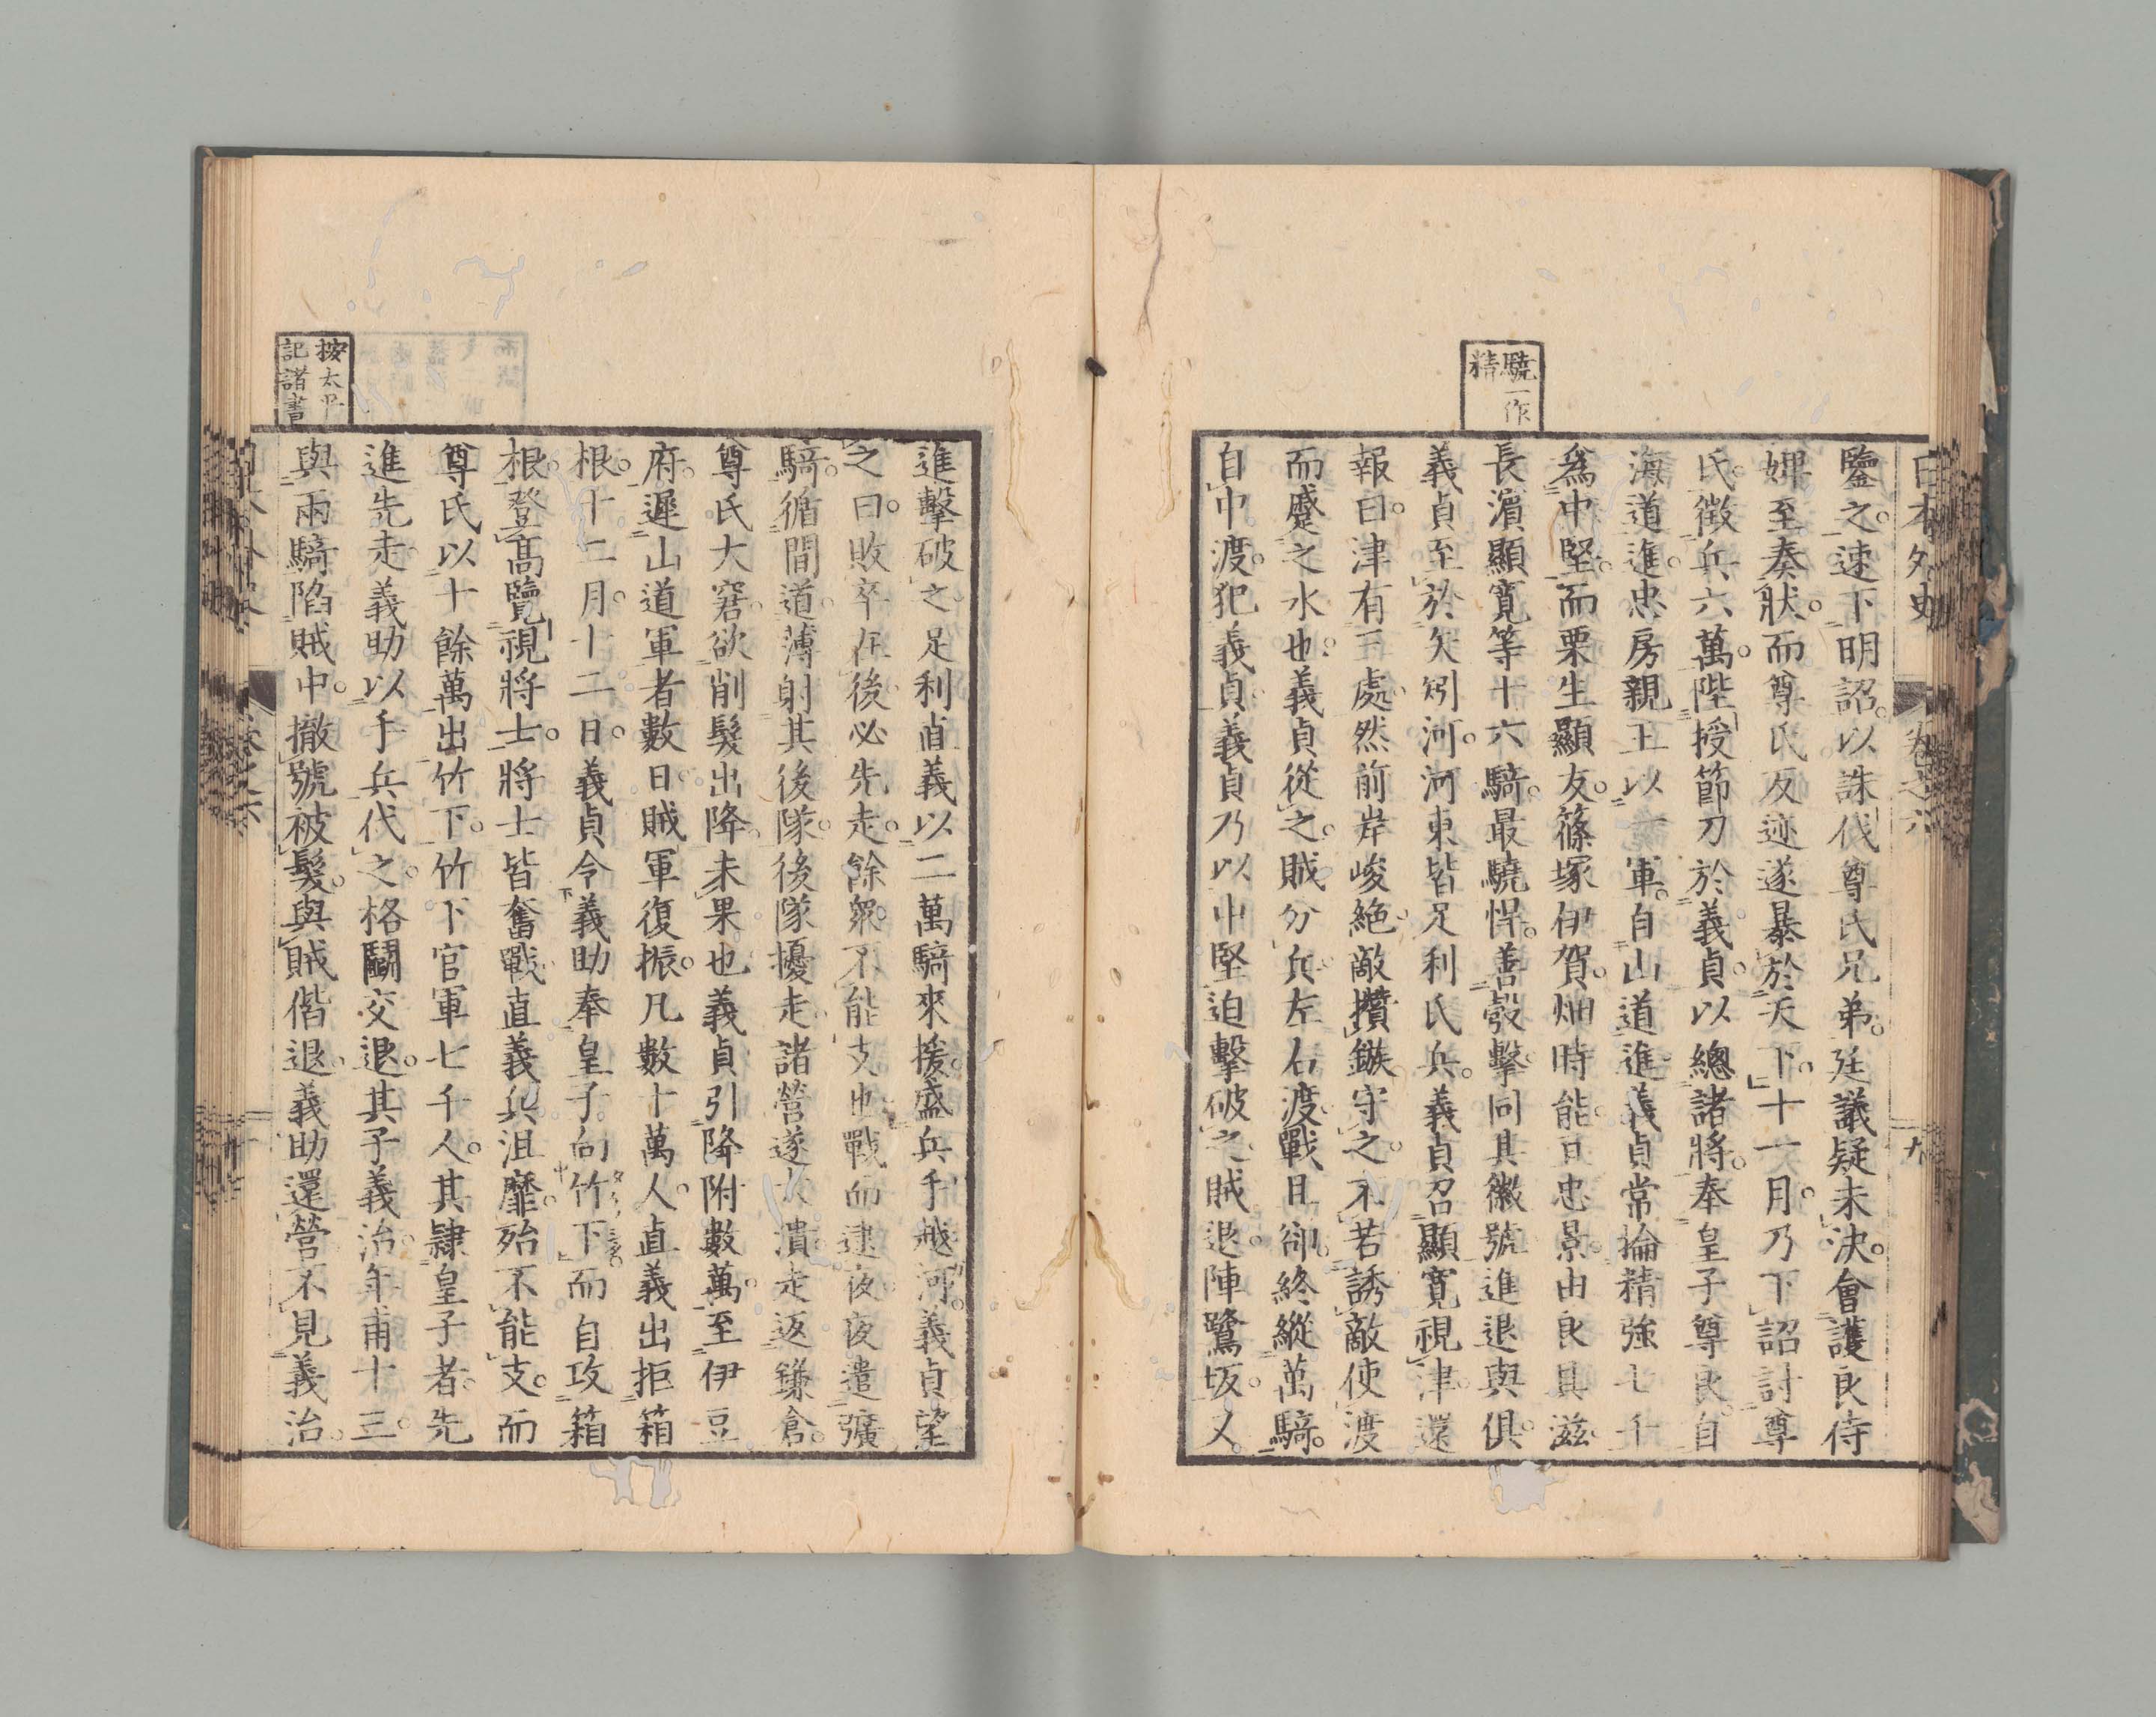 日本外史
卷之六
九
驍一作
精
鑒之。速下明詔。以誅伐尊氏兄弟。廷議疑未決。會護良侍
婢至奏狀。而尊氏反迹遂暴於天下。十一月。乃下詔討尊
氏。徵兵六萬。陛授節刀於義貞。以總諸將。奉皇子尊良。自
海道進。忠房親王以一軍。自山道進。義貞常掄精強七千
爲中堅。而栗生顯友。篠塚伊賀。畑時能。亘忠景。由良具滋。
長濵顯寛等十六騎。最驍悍。善彀擊。同其徽號。進退與俱。
義貞至於矢矧河。河東皆足利氏兵。義貞召顯寛視津。還
報曰。津有三處。然前岸峻絶。敵攢鏃守之。不若誘敵使渡
而蹙之水也。義貞從之。賊分兵。左右渡。戰且卻。終縱萬騎。
自中渡。犯義貞。義貞乃以中堅迫擊破之。賊退陣鷺坂。又
進擊破之。足利直義以二萬騎來援。盛兵手越河。義貞望
之曰。敗卒在後。必先走。餘衆不能支也。戰而逮夜。夜遣彍
騎。循間道。薄射其後隊。後隊擾走。諸營遂大潰。走返鎌倉。
尊氏大窘。欲削髮出降。未果也。義貞引降附數萬。至伊豆
府。遲山道軍者數日。賊軍復振。凡數十萬人。直義出拒箱
根。十二月十二日。義貞令義助奉皇子。向竹下。而自攻箱
根。登高覽視將士。將士皆奮戰。直義兵沮靡。殆不能支。而
尊氏以十餘萬出竹下。竹下官軍七千人。其隷皇子者。先
進先走。義助以手兵代之。格鬬交退。其子義治。年甫十三。
與兩騎陷賊中。撤號被髮。與賊偕退。義助還營。不見義治。
按太平
記諸書